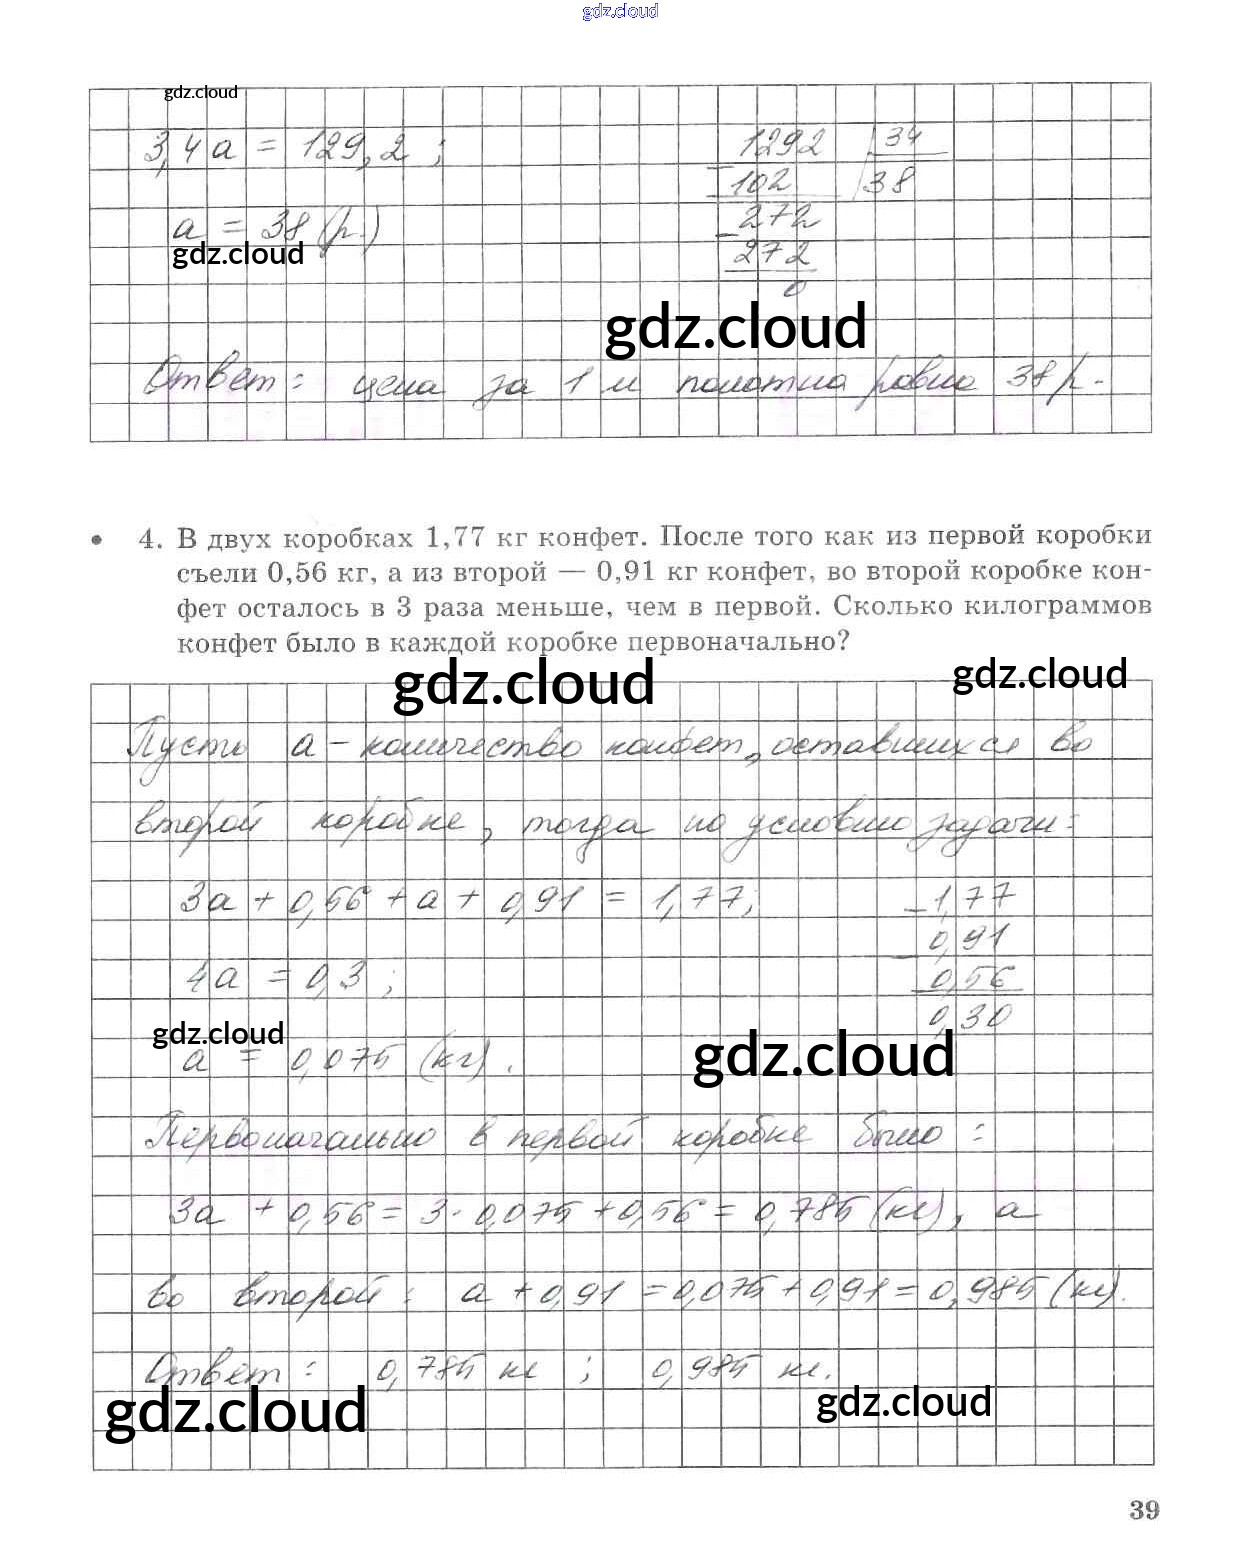 gdz.cloud
gdz.cloud
3,4a = 129,2 ;
1292 | 34
- 102 | 38
a = 38 (р.)
- 272
272
0
gdz.cloud
gdz.cloud
Ответ: цена за 1 м полотна равна 38 р.
• 4. В двух коробках 1,77 кг конфет. После того как из первой коробки
съели 0,56 кг, а из второй — 0,91 кг конфет, во второй коробке кон-
фет осталось в 3 раза меньше, чем в первой. Сколько килограммов
конфет было в каждой коробке первоначально?
gdz.cloud
gdz.cloud
Пусть a - количество конфет, оставшихся во
второй коробке, тогда по условию задачи:
3a + 0,56 + a + 0,91 = 1,77;
- 1,77
- 0,91
0,56
0,30
4a = 0,3 ;
gdz.cloud
gdz.cloud
a = 0,075 (кг).
Первоначально в первой коробке было :
3a + 0,56 = 3 · 0,075 + 0,56 = 0,785 (кг), а
во второй : a + 0,91 = 0,075 + 0,91 = 0,985 (кг).
Ответ : 0,785 кг ; 0,985 кг.
gdz.cloud
gdz.cloud
39